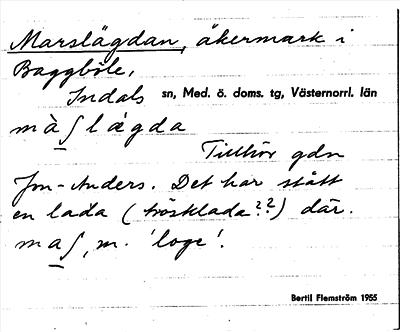 Marslägdan, åkermark i
Baggböle,
Indals sn, Med. ö. doms. tg, Västernorrl. län
màʃlǽgda
Tillhör gdn
Jon-Anders. Det har stått
en lada (trösklada??) där.
maʃ, m. 'loge'.
Bertil Flemström 1955